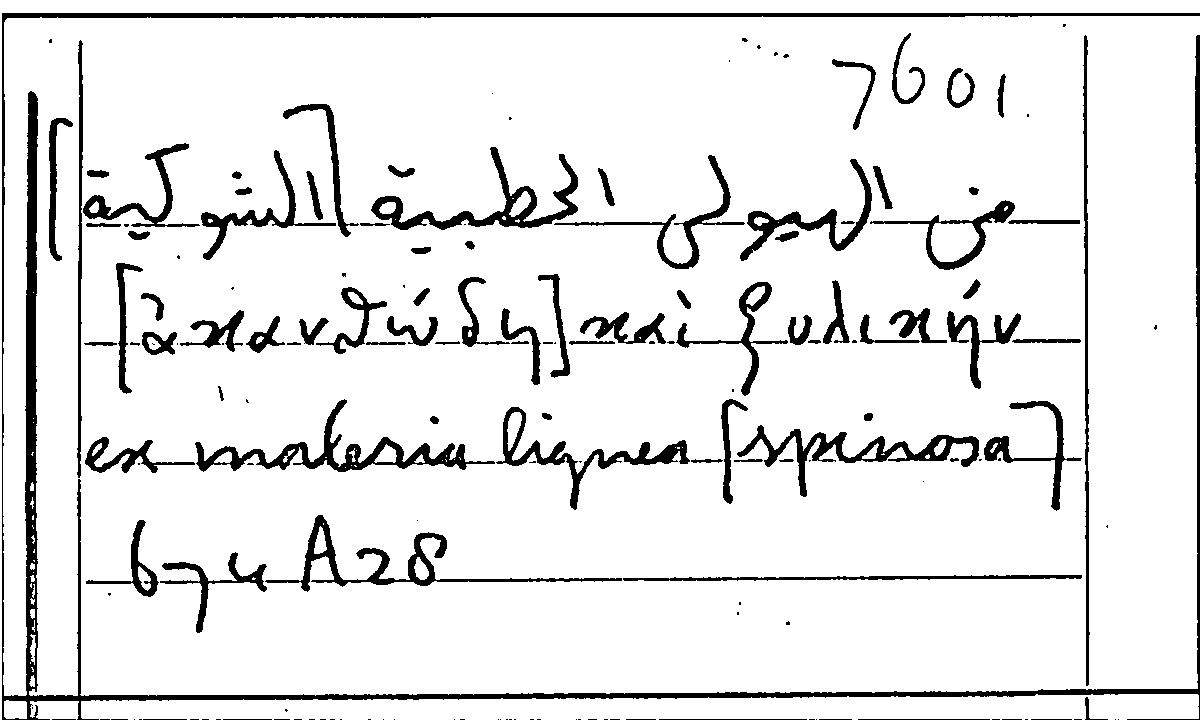 7601
من الهيولى الخطبية [الشوكية]
[ἀκανθώδη] καὶ ξυλικήν
ex materia lignea [spinosa]
674 A28